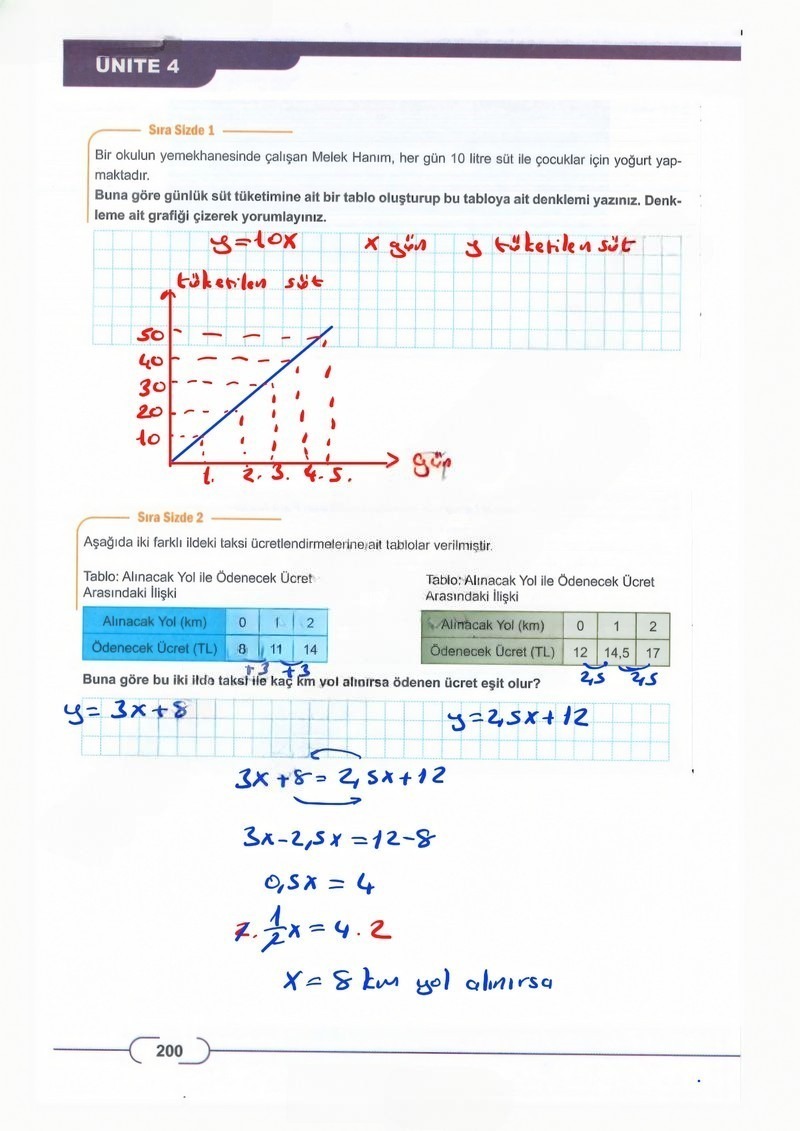 ÜNİTE 4
Sıra Sizde 1
Bir okulun yemekhanesinde çalışan Melek Hanım, her gün 10 litre süt ile çocuklar için yoğurt yap-
maktadır.
Buna göre günlük süt tüketimine ait bir tablo oluşturup bu tabloya ait denklemi yazınız. Denk-
leme ait grafiği çizerek yorumlayınız.
y=10x x gün y tüketilen süt
tüketilen süt
50
40
30
20
10
1. 2. 3. 4. 5. gün
Sıra Sizde 2
Aşağıda iki farklı ildeki taksi ücretlendirmelerine ait tablolar verilmiştir.
Tablo: Alınacak Yol ile Ödenecek Ücret
Arasındaki İlişki
Alınacak Yol (km) 0 1 2
Ödenecek Ücret (TL) 8 11 14
+3 +3
Tablo: Alınacak Yol ile Ödenecek Ücret
Arasındaki İlişki
Alınacak Yol (km) 0 1 2
Ödenecek Ücret (TL) 12 14,5 17
2,5 2,5
Buna göre bu iki ilde taksi ile kaç km yol alınırsa ödenen ücret eşit olur?
y= 3x+8 y=2,5x+12
3x+8=2,5x+12
3x-2,5x=12-8
0,5x=4
2. 1/2 x=4.2
x=8 km yol alınırsa
200